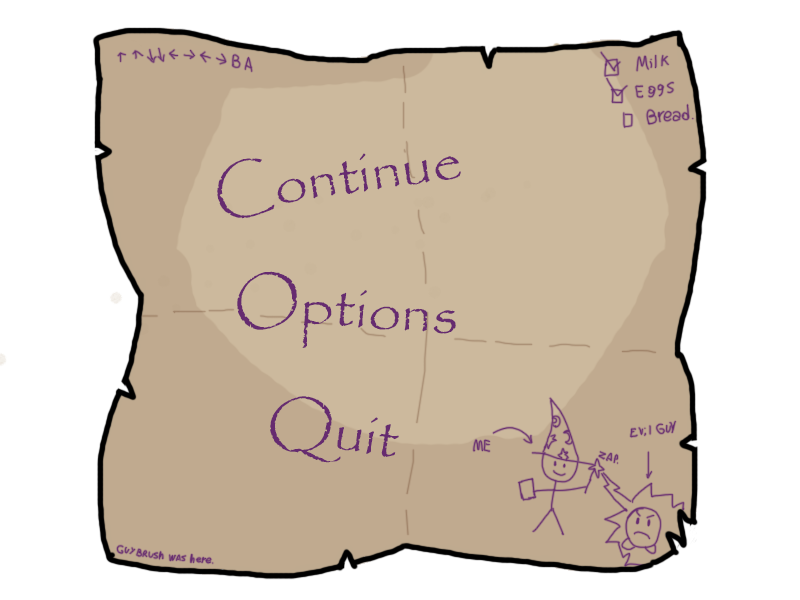 ↑ ↑ ↓↓ ← → ← → B A
Milk
Eggs
Bread.
Continue
Options
Quit
ME
ZAP.
EVil GUY
GUYBRUSh WAS here.